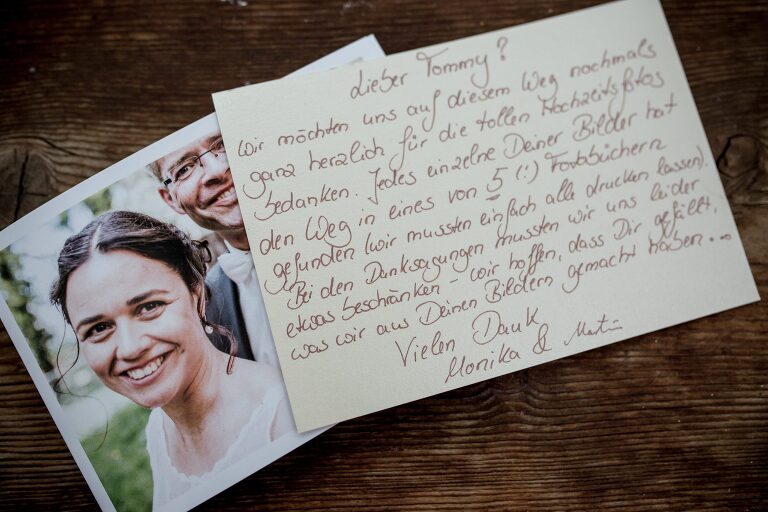 Lieber Tommy?
Wir möchten uns auf diesem Weg nochmals
ganz herzlich für die tollen Hochzeitsfotos
bedanken. Jedes einzelne Deiner Bilder hat
den Weg in eines von 5 (!) Fotobüchern
gefunden (wir mussten einfach alle drucken lassen).
Bei den Danksagungen mussten wir uns leider
etwas beschränken - wir hoffen, dass Dir gefällt,
was wir aus Deinen Bildern gemacht haben...
Vielen Dank
Monika & Martin